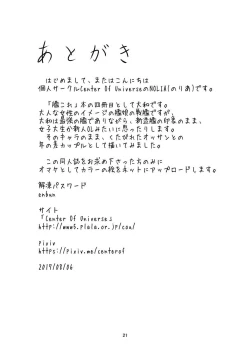 あとがき
はじめまして、またはこんにちは
個人サークルCenter Of UniverseのNOLIA(のりあ)です。
『艦これ』本の四冊目として大和です。
大人な女性のイメージの艦娘の戦艦ですが、
大和は最強の艦でありながら、新造艦の印象のまま、
女子大生か新人OLみたいに思ったりします。
そのキャラのまま、くたびれたオッサンとの
年の差カップルとして描いてみました。
この同人誌をお求め下さったのみに
オマケとしてカラーの絵をネットにアップロードします。
解凍パスワード
サイト
「Center Of Universe」
http://www5.plala.or.jp/cou/
pixiv
https://pixiv.me/centerof
2017/08/06
21